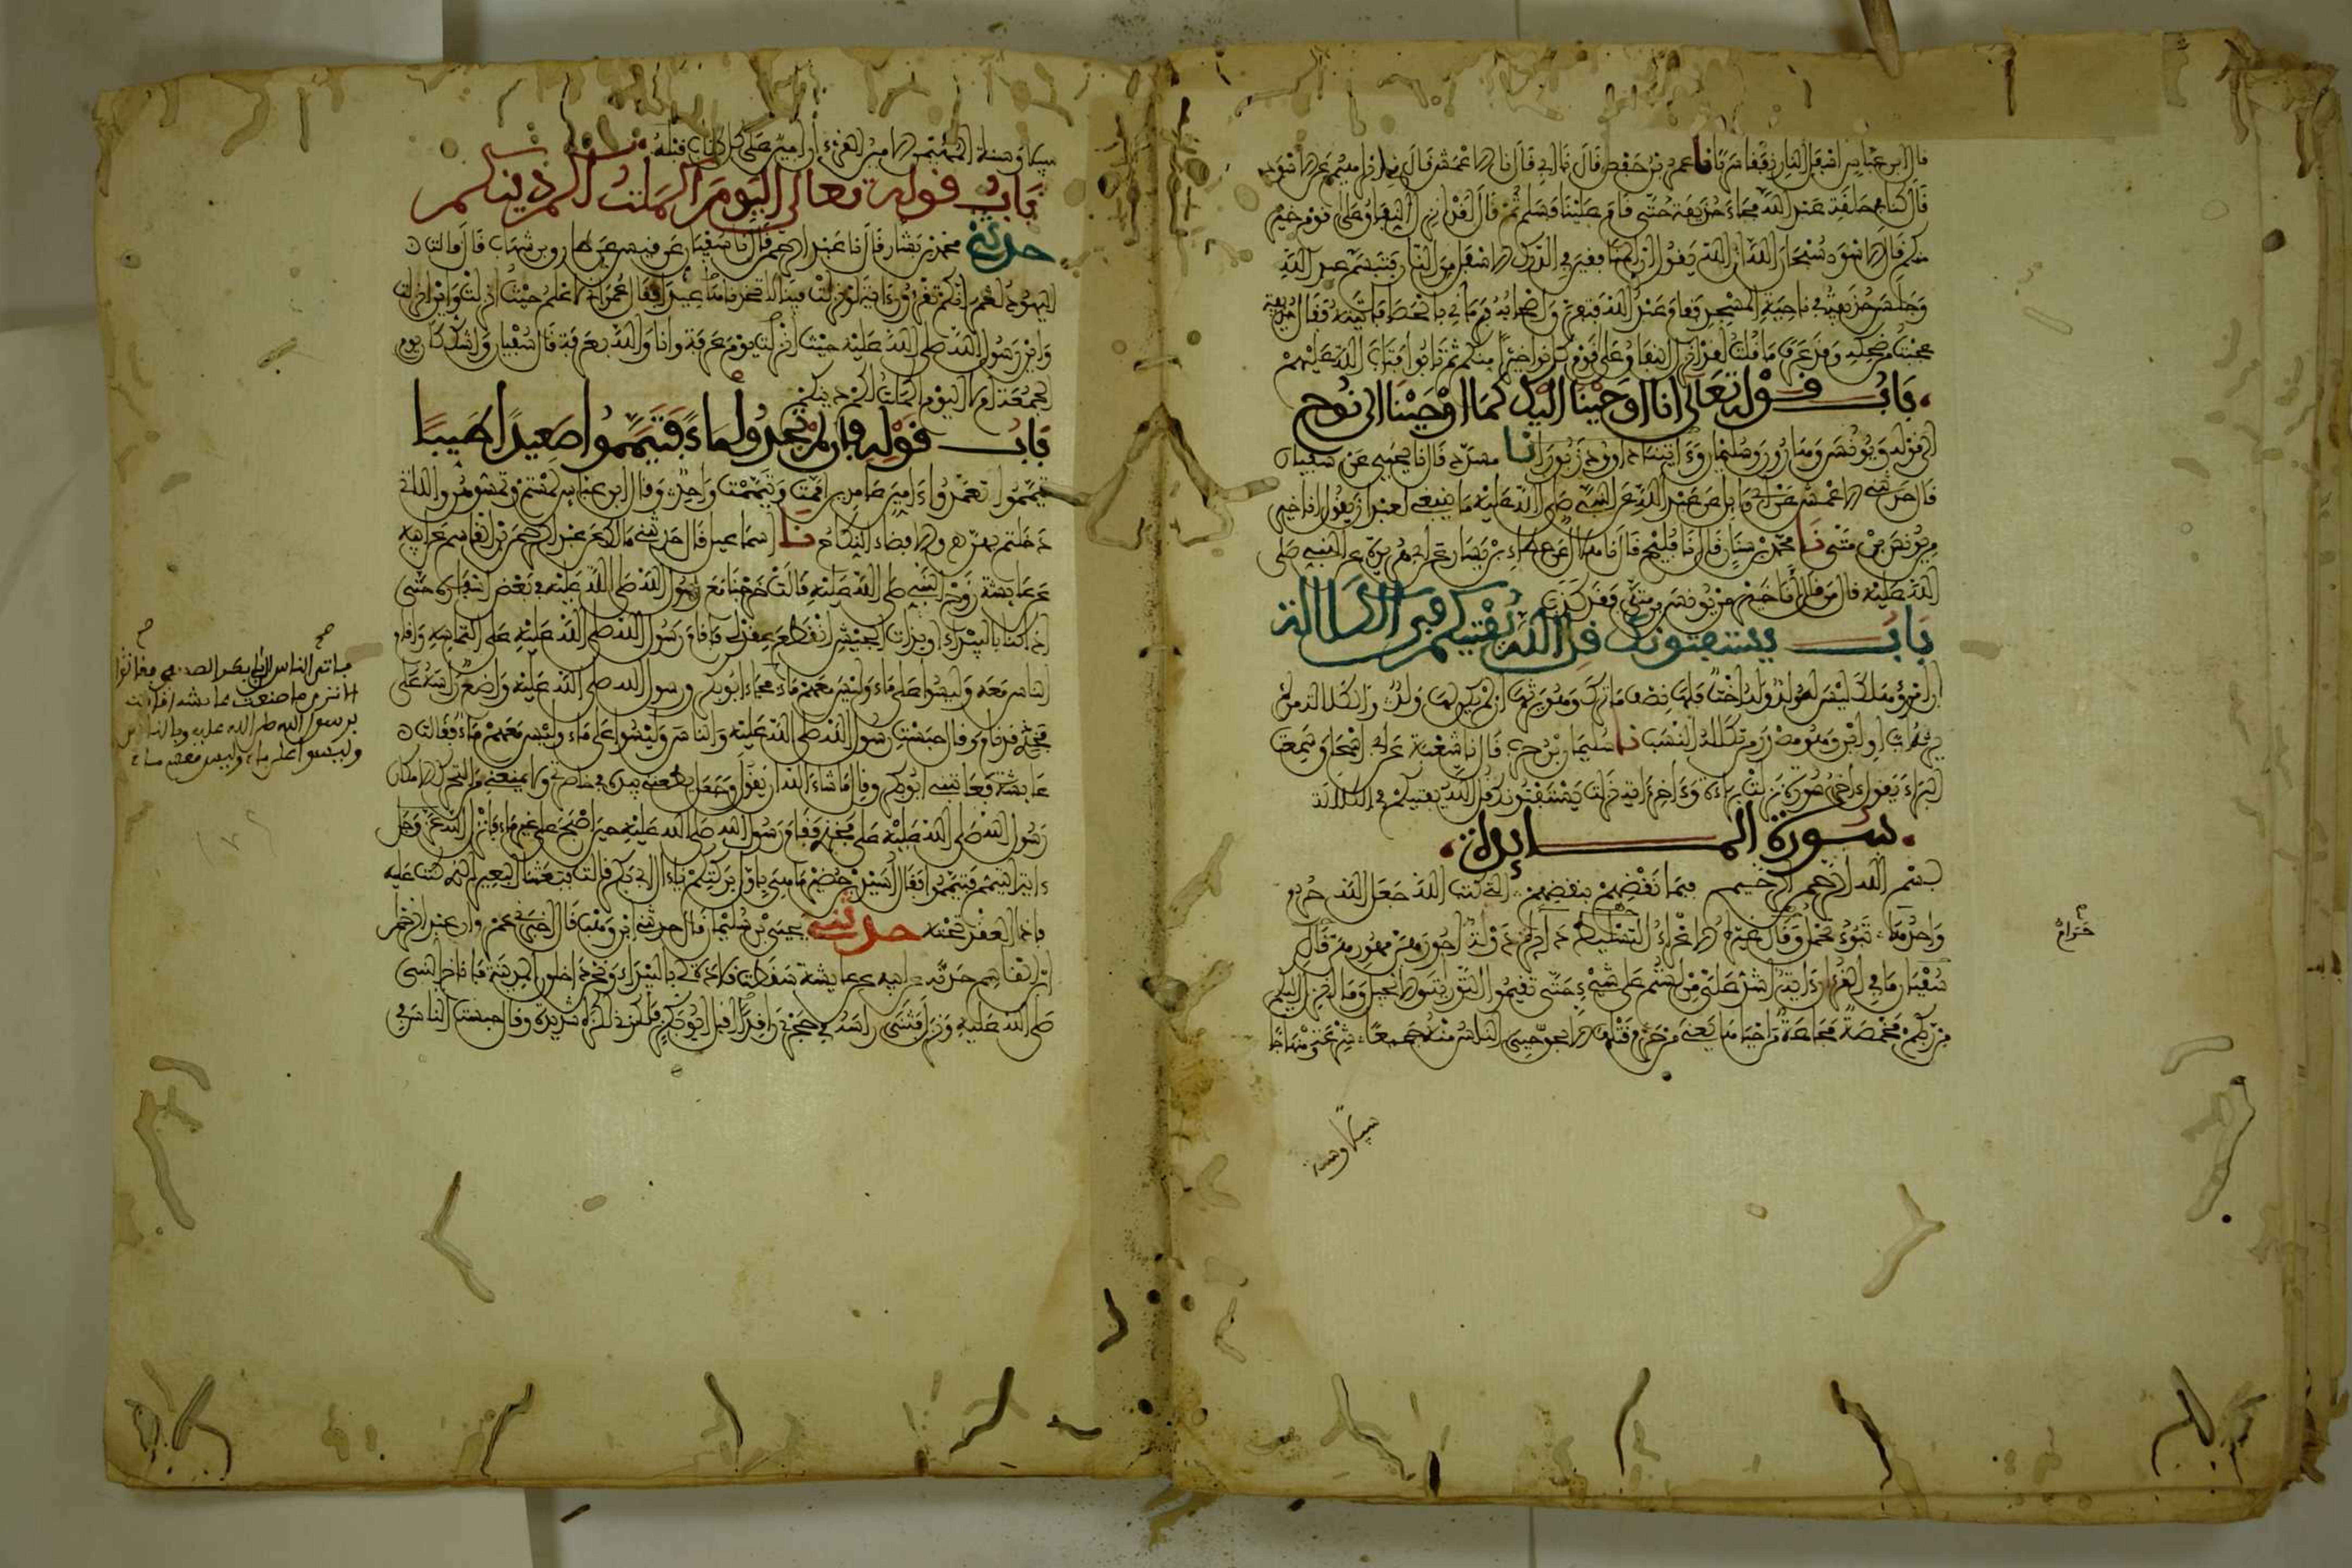 قال ابن عباس اسفل النار نفقا سربا نا عمر بن حفص قال نا ابي قال نا الاعمش قال ني ابرهيم عن الاسود
قال كنا في حلقة عبد الله فجاء حذيفة حتى قام علينا فسلم ثم قال لقد انزل النفاق على قوم خير
منكم قال الاسود سبحان الله ان الله يقول ان المنافقين في الدرك الاسفل من النار فتبسم عبد الله
وجلس حذيفة في ناحية المسجد فقام عبد الله فتفرق اصحابه فرماني بالحصا فاتيته فقال حذيفة
عجبت من ضحكه وقد عرف ما قلت لقد انزل النفاق على قوم كانوا خيرا منكم ثم تابوا فتاب الله عليهم
باب قوله تعالى انا اوحينا اليك كما اوحينا الى نوح
الى قوله ويونس وهارون وسليمان وءاتينا داوود زبورا نا مسدد قال نا يحيى عن سفيان
قال حدثني الاعمش عن ابي وايل عن عبد الله عن النبي صلى الله عليه ما ينبغي لعبد ان يقول انا خير
من يونس بن متى نا محمد بن سنان قال نا فليح قال نا هلال عن عطاء بن يسار عن ابي هريرة عن النبي صلى
الله عليه قال من قال انا خير من يونس بن متى فقد كذب
باب يستفتونك قل الله يفتيكم في الكلالة
ان امرؤ هلك ليس له ولد وله اخت فلها نصف ما ترك وهو يرثها ان لم يكن لها ولد والكلالة من لم
يرثه اب او ابن وهو مصدر من تكلله النسب نا سليمان بن حرب قال نا شعبة عن ابي اسحاق سمعت
البراء يقول ءاخر سورة نزلت براءة وءاخر ءاية نزلت يستفتونك قل الله يفتيكم في الكلالة
سورة المايدة
بسم الله الرحمن الرحيم فبما نقضهم بنقضهم التي كتب الله جعل الله حرم
واحدها تبوء تحمل وقال غيره الاغراء التسليط دايرة دولة اجورهن مهورهن قال
سفيان ما في القرءان ءاية اشد علي من لستم على شيء حتى تقيموا التورية والانجيل وما انزل اليكم
من ربكم مخمصة مجاعة من احياها يعني من حرم قتلها الا بحق حيي الناس منه جميعا شرعة ومنهاجا
سبيلا وسنة
حرام
سبيلا وسنة المهيمن الامين القرءان امين على كل كتاب قبله
باب قوله تعالى اليوم اكملت لكم دينكم
حدثني محمد بن بشار قال نا عبد الرحمن قال نا سفيان عن قيس عن طارق بن شهاب قال قالت
اليهود لعمر انكم تقرؤون ءاية لو نزلت فينا لاتخذناها عيدا فقال عمر اني لاعلم حيث انزلت واين انزلت
واين رسول الله صلى الله عليه حيث انزلت يوم عرفة وانا والله بعرفة قال سفيان واشك كان يوم
الجمعة ام لا اليوم اكملت لكم دينكم
باب قوله فلم تجدوا ماء فتيمموا صعيدا طيبا
تيمموا تعمدوا ءامين عامدين اممت وتيممت واحد وقال ابن عباس لمستم وتمسوهن واللاتي
دخلتم بهن والافضاء النكاح نا اسماعيل قال حدثني مالك عن عبد الرحمن بن القاسم عن ابيه
عن عايشة زوج النبي صلى الله عليه قالت خرجنا مع رسول الله صلى الله عليه في بعض اسفاره حتى
اذا كنا بالبيداء او بذات الجيش انقطع عقد لي فاقام رسول الله صلى الله عليه على التماسه واقام
الناس معه وليسوا على ماء وليس معهم ماء فجاء ابو بكر ورسول الله صلى الله عليه واضع راسه على
فخذي قد نام وقال حبست رسول الله صلى الله عليه والناس وليسوا على ماء وليس معهم ماء فقالت
عايشة فعاتبني ابو بكر وقال ما شاء الله ان يقول وجعل يطعنني بيده في خاصرتي ولا يمنعني من التحرك الا مكان
رسول الله صلى الله عليه على فخذي فقام رسول الله صلى الله عليه حين اصبح على غير ماء فانزل الله عز وجل
ءاية التيمم فتيمموا فقال اسيد بن حضير ما هي باول بركتكم يا ءال ابي بكر قالت فبعثنا البعير الذي كنت عليه
فاذا العقد تحته حدثني يحيى بن سليمان قال حدثني ابن وهب قال اخبرني عمرو ان عبد الرحمن
ابن القاسم حدثه عن ابيه عن عايشة سقطت قلادة لي بالبيداء ونحن داخلون المدينة فاناخ النبي
صلى الله عليه ونزل فثنى راسه في حجري راقدا اقبل ابو بكر فلكزني لكزة شديدة وقال حبست الناس في
صح
فاتى الناس الى ابي بكر الصديق فقالوا
الا ترى ما صنعت عايشة اقامت
برسول الله صلى الله عليه وبالناس
وليسوا على ماء وليس معهم ماء